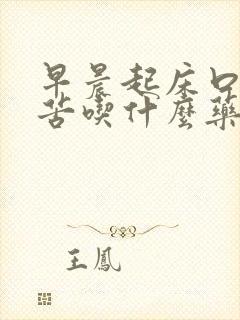 早晨起床口
苦喫什麼藥
王鳳